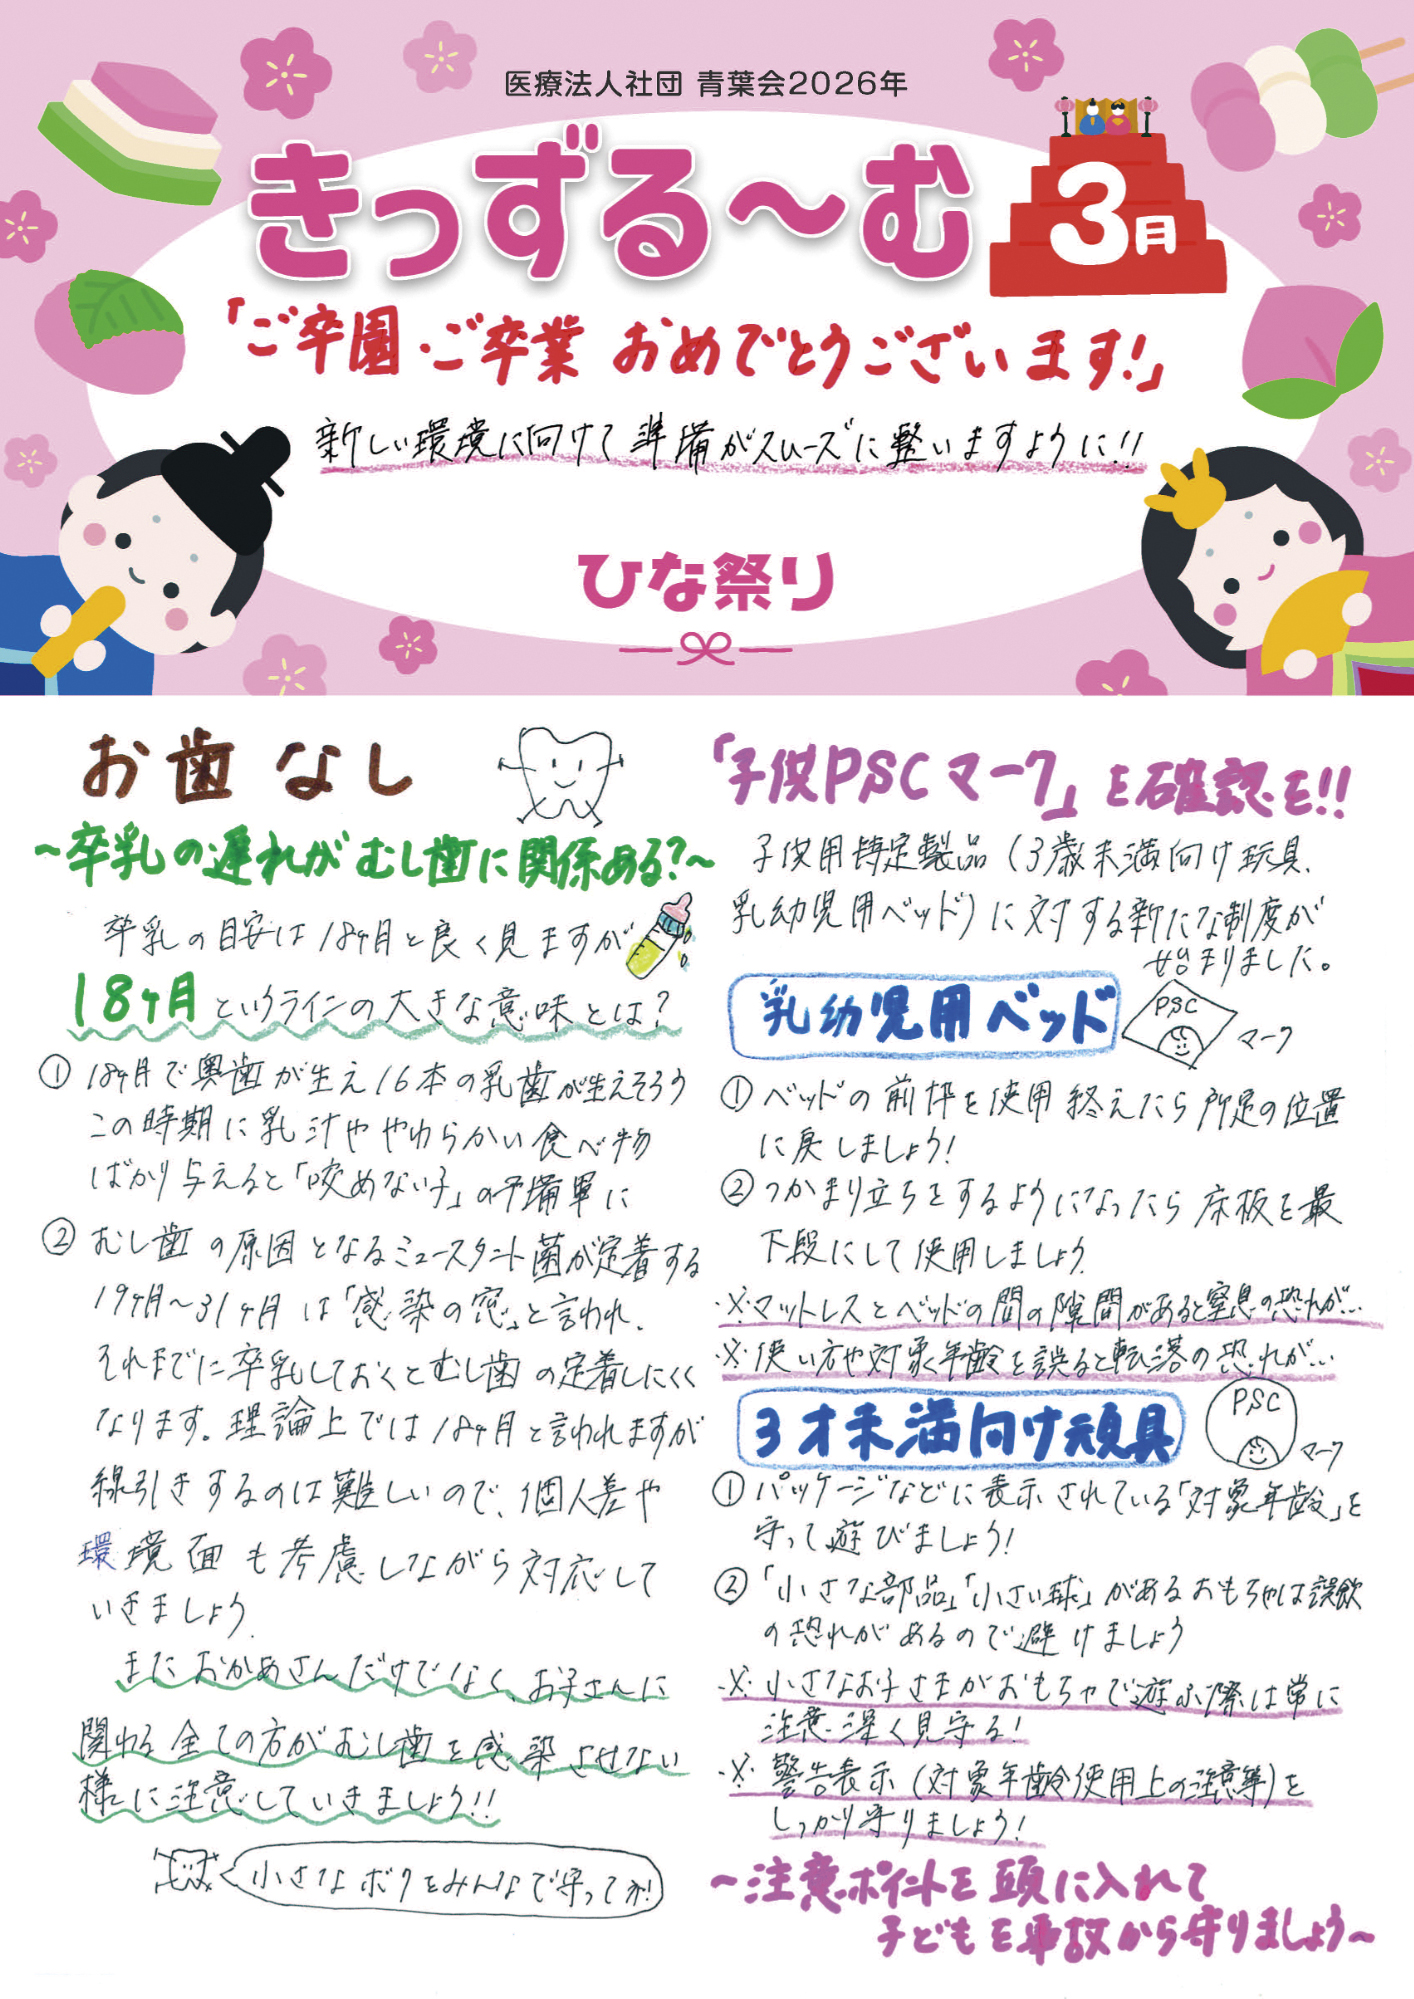 医療法人社団 青葉会2026年
きっずる〜む
3月
「ご卒園・ご卒業 おめでとうございます!」
新しい環境に向けて準備がスムーズに整いますように!!
ひな祭り
お歯なし
~卒乳の遅れがむし歯に関係ある?~
卒乳の目安は18ヶ月と良く見ますが
18ヶ月というラインの大きな意味とは?
① 18ヶ月で奥歯が生え16本の乳歯が生えそろう
この時期に乳汁ややわらかい食べ物
ばかり与えると「咬めない子」の予備軍に
② むし歯の原因となるミュータント菌が定着する
19ヶ月~31ヶ月は「感染の窓」と言われ、
それまでに卒乳しておくとむし歯の定着しにくく
なります。理論上では18ヶ月と言われますが
線引きするのは難しいので、個人差や
環境面も考慮しながら対応して
いきましょう
またおかあさんだけでなく、お子さんに
関わる全ての方がむし歯を感染させない
様に注意していきましょう!!
小さなボクをみんなで守ってネ!
「子供PSCマーク」を確認を!!
子供用特定製品(3歳未満向け玩具、
乳幼児用ベッド)に対する新たな制度が
始まりました。
乳幼児用ベッド
PSC
マーク
① ベッドの前枠を使用終えたら所定の位置
に戻しましょう!
② つかまり立ちをするようになったら床板を最
下段にして使用しましょう
※マットレスとベッドの間の隙間があると窒息の恐れが…
※使い方や対象年齢を誤ると転落の恐れが…
3才未満向け玩具
PSC
マーク
① パッケージなどに表示されている「対象年齢」を
守って遊びましょう!
② 「小さな部品」「小さい球」があるおもちゃは誤飲
の恐れがあるので避けましょう
※小さなお子さまがおもちゃで遊ぶ際は常に
注意深く見守る!
※警告表示(対象年齢使用上の注意等)を
しっかり守りましょう!
~注意ポイントを頭に入れて
子どもを事故から守りましょう~